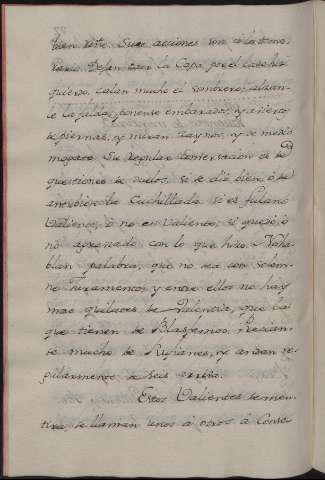 bien visto. Sus acciones son a lo temo-
rario. Dejan caer la Capa por el lado iz-
quierdo, calan mucho el sombrero, alzan-
le la falda, ponense embarados, y aviertos
de piernas, y miran zaynos, y de medio
mogate. Su regular conversacion es de
questiones de duelos, si se dio bien, o se
anduvo la Cuchillada: si es fulano
Valiente, o no es Valiente; si quedó, o
no agraviado con lo que hizo. No ha-
blan palabra, que no sea con solem-
ne Juramento; y entre ellos no hay
mas quilates de Valencia, que los
que tienen de Blasfemos. Precian-
se mucho de Rufianes, y andan re-
gularmente de seis
Estos Valientes de men-
tira se llaman unos á otros á Conse-